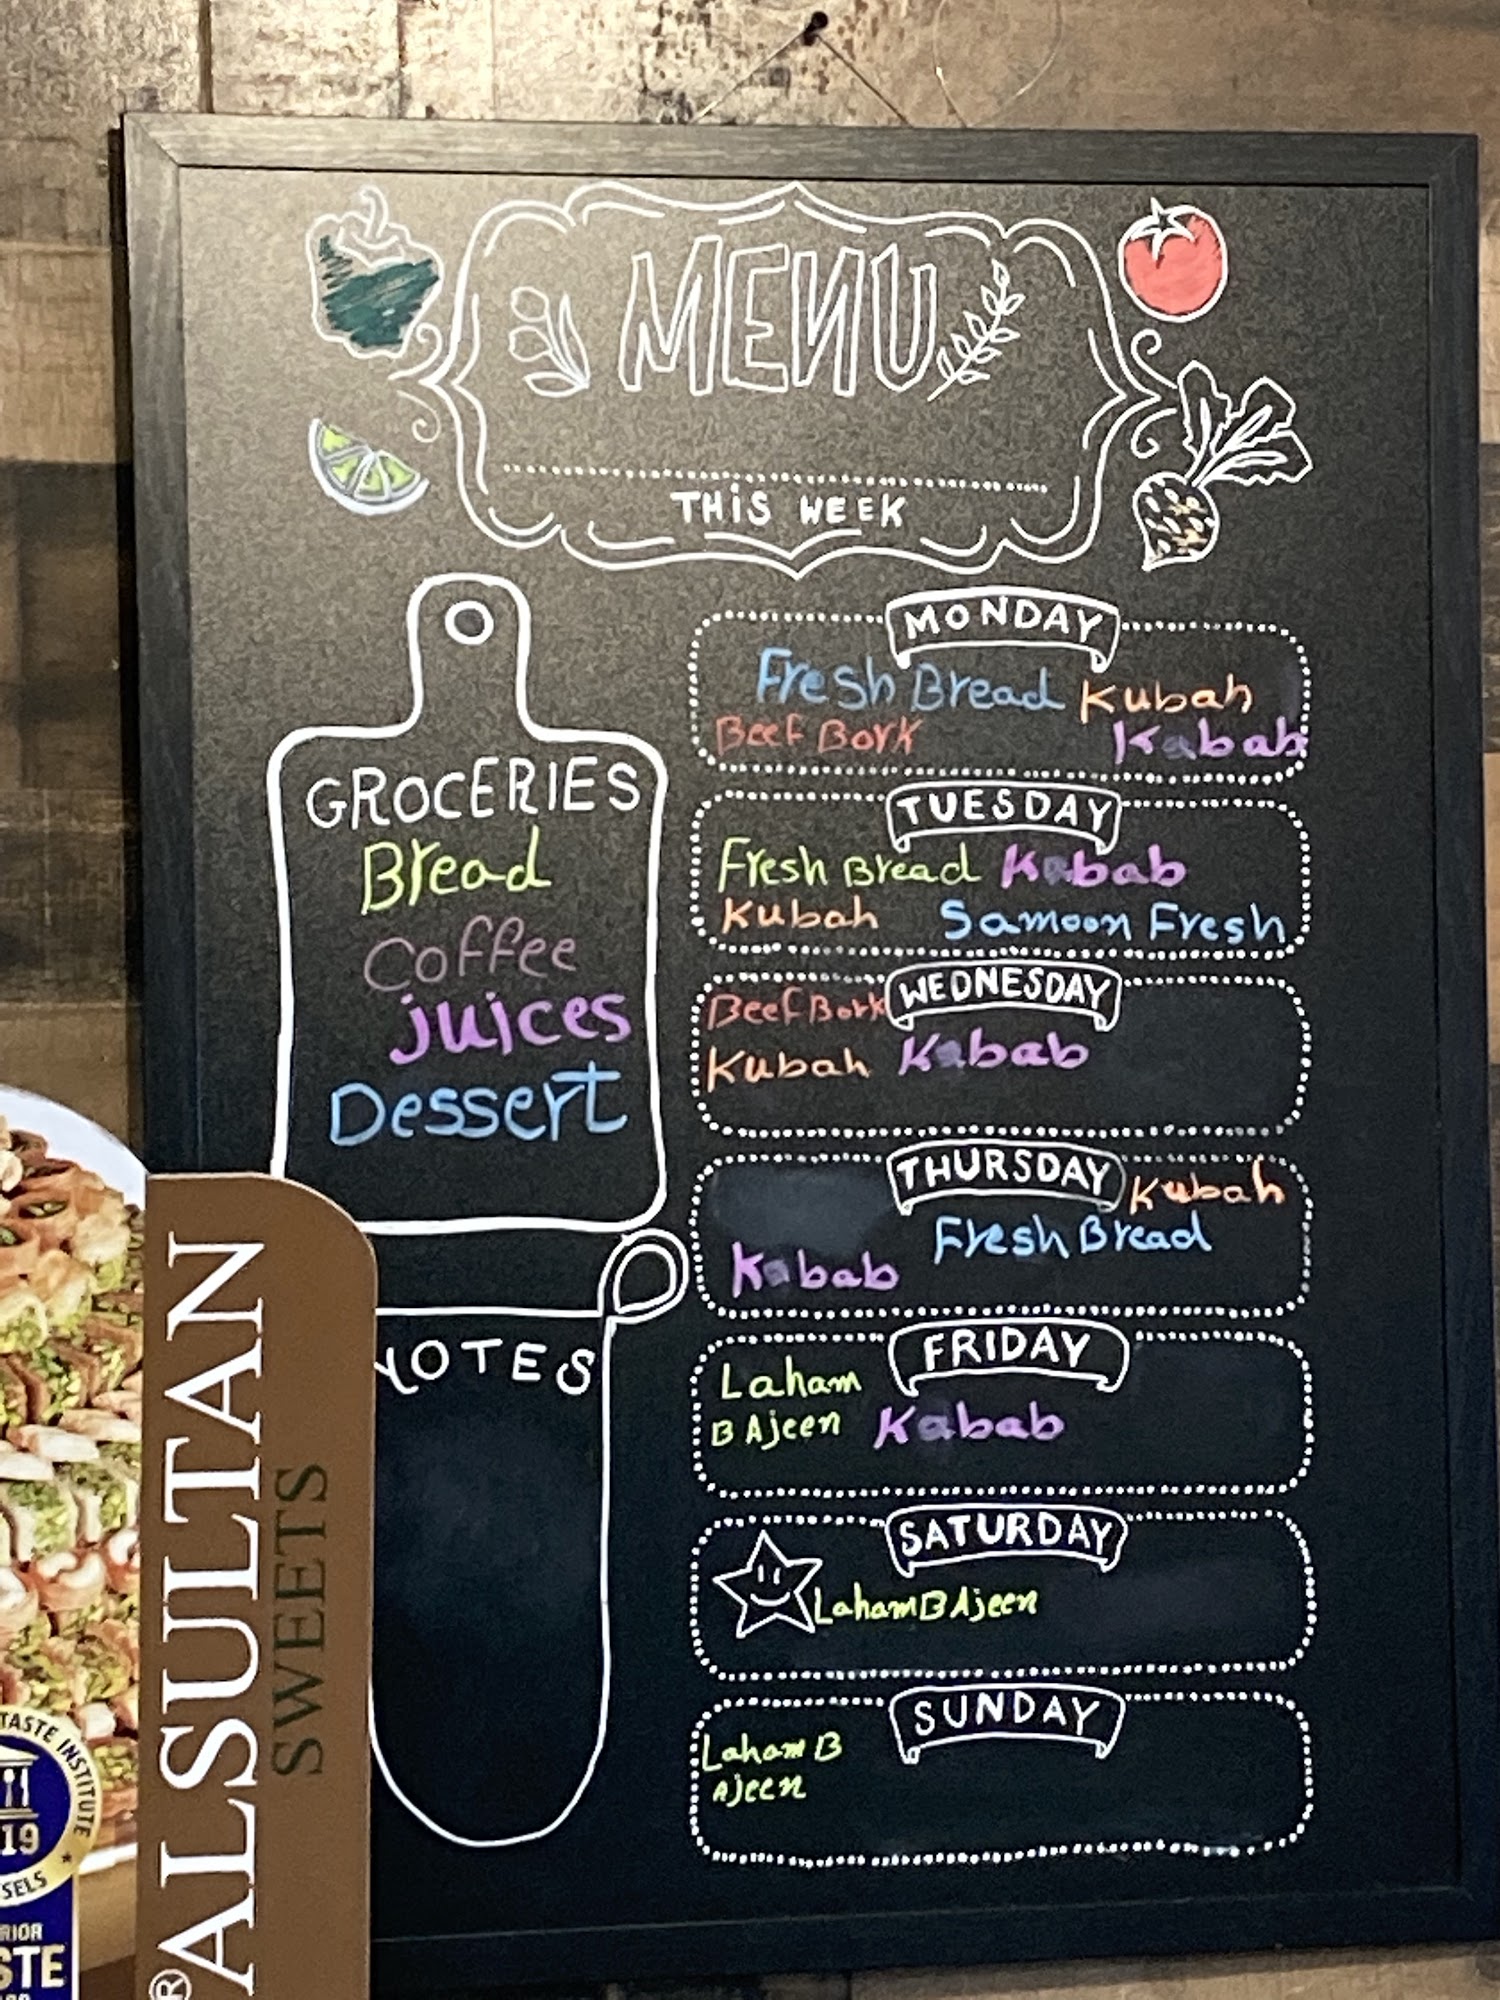 MENU
THIS WEEK
GROCERIES
Bread
Coffee
juices
Dessert
NOTES
MONDAY
Fresh Bread Kubah
Beef Bork Kabab
TUESDAY
Fresh Bread Kabab
Kubah Samoon Fresh
WEDNESDAY
Beef Bork
Kubah Kabab
THURSDAY
Kubah
Fresh Bread
Kabab
FRIDAY
Laham
B Ajeen Kabab
SATURDAY
Laham B Ajeen
SUNDAY
Laham B
Ajeen
®ALSULTAN
SWEETS
TASTE INSTITUTE
19
SELS
RIOR
STE